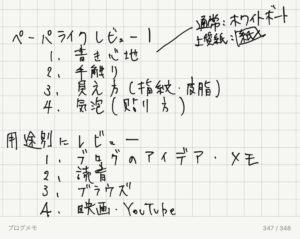 ペーパライクレビュー
通常：ホワイトボード
上質紙：
1. 書き心地
2. 手触り
3. 見え方（指紋・皮脂）
4. 気泡（貼り方）
用途別にレビュー
1. ブログのアイデア・メモ
2. 読書
3. ブラウズ
4. 映画・YouTube
ブログメモ
347 / 348